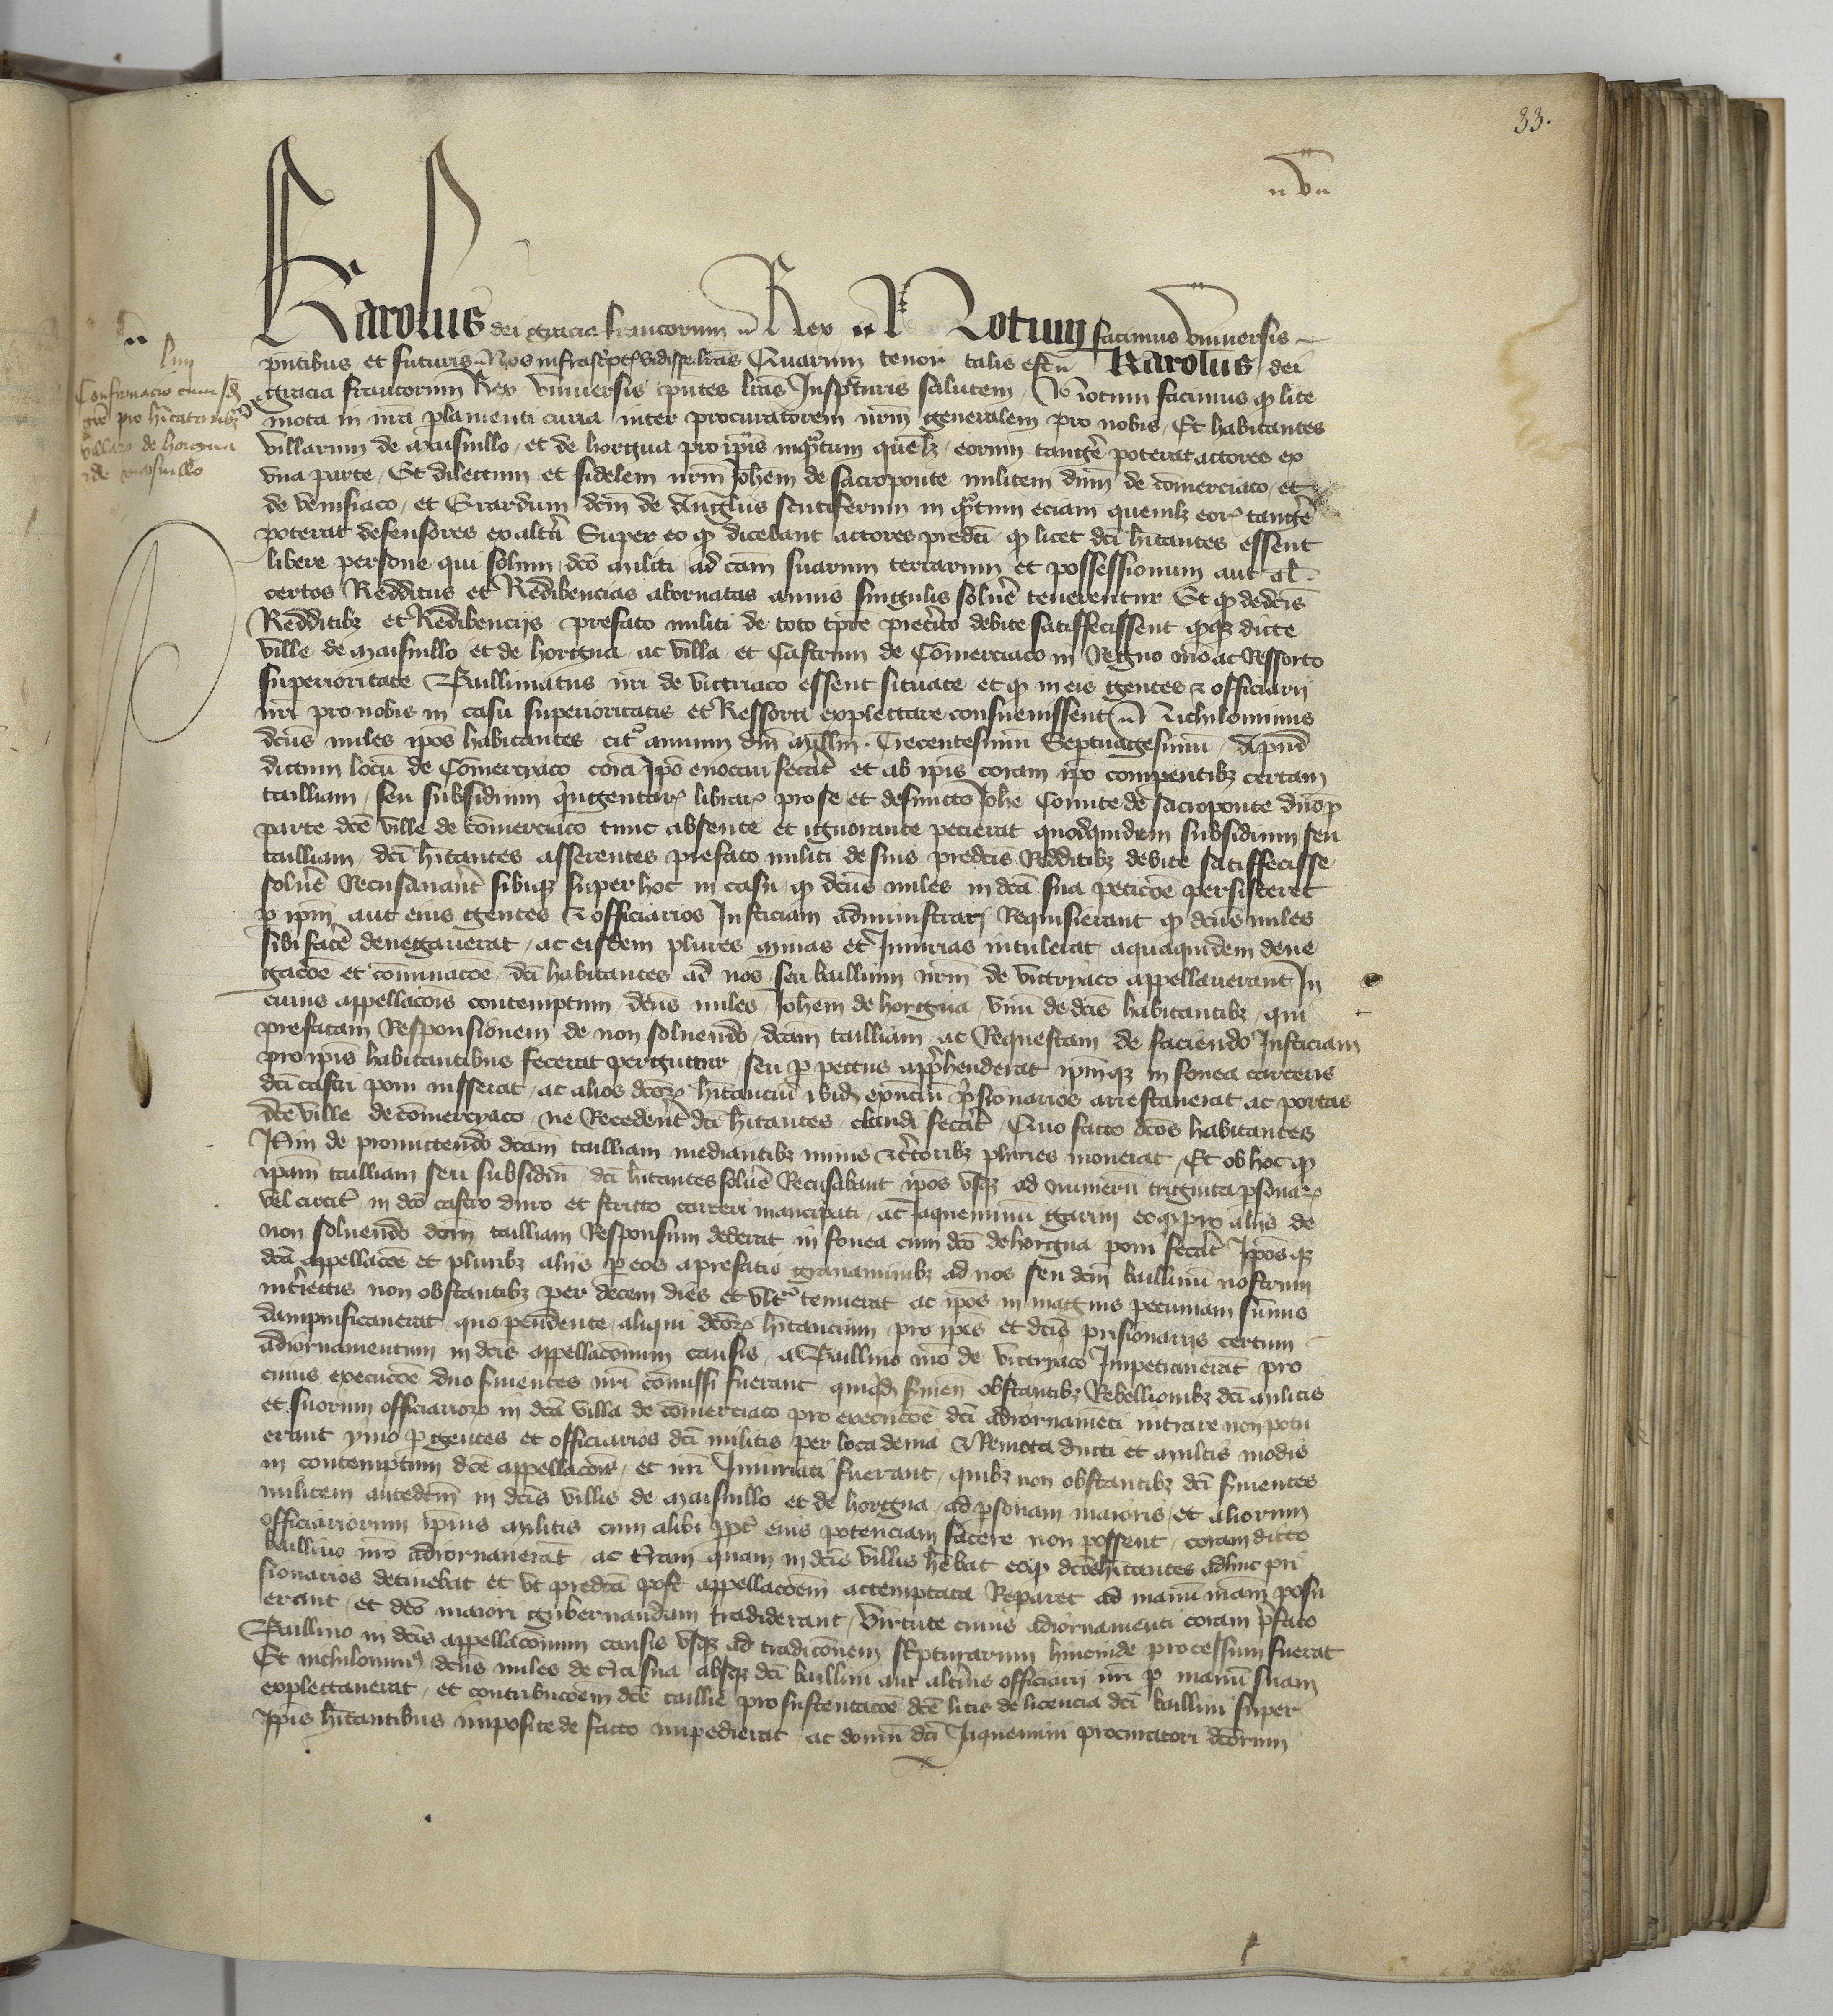 33.
Karolus dei gracia francorum Rex Notum facimus Universis
pntibus et futuris Nos infrascptas vidisse lras Quarum tenor talis est Karolus dei
gracia francorum Rex Universis pntes lras Inspcturis salutem Notum facimus q lite
mota in nra plamenti curia inter procuratorem nrm generalem pro nobis Et habitantes
villarum de maisnillo et de horgna pro ipis inqntum quelz eorum tange poterat actores ex
una parte Et dilectum et fidelem nrm Johem de sacroponte militem dnm de comerciaco et
de venisiaco et Erardum dcm de Anglus scutiferum in qntum eciam quemlz eor tange
poterat defensores ex altera Super eo q dicebant actores predci q licet dci hitantes essent
libere persone qui solum dco militi ad cam suarum terrarum et possessionum aut al
certos Redditus et Redibencias abornatas annis singulis solve tenerentur Et q de dcis
Redditibz et Redibencijs prefato militi de toto tpre preterito debite satiffecissent qqz dicte
ville de maisnillo et de horgna ac villa et Castrum de Comerciaco in Regno nro ac Ressorto
superioritate Baillivatus nri de victriaco essent situate et q in eis gentes et officiarij
nri pro nobis in casu superioritatis et Ressorti explectare consuevissent Nichilominus
dcus miles ipos habitantes cit annum dni millm Trecentesimum Septuagesimum Apud
dictum locu de Comercyaco cora Ipo evocari fecat et ab ipis coram ipo compentibz certam
tailliam seu subsidium quigentar librar pro se et defuncto Johe Comite de sacroponte dno p
parte dce ville de comerciaco tunc absente et ignorante petierat quodquidem subsidium seu
tailliam dci hitantes asserentes prefato militi de suis predcis Redditibz debite satiffecisse
solve Recusavant sibiqz super hoc in casu q dcus miles in dca sua peticoe persisteret
p ipm aut eius gentes et officiarios Justiciam administrari Requisierant q dcus miles
sibi face denegaverat ac eisdem plures minas et Iniurias intulerat aquaquidem dene
gacoe et comminacoe dci habitantes ad nos seu baillivum nrm de victryaco appellaverant In
cuius appellacois contemptum dcus miles Johem de horgna unu de dcis habitantibz qui
prefatam Responsionem de non solvendo dcam tailliam ac Requestam de faciendo Justiciam
pro ipis habitantibus fecerat per guttur seu p pectus apphenderat ipmqz in fovea carceris
dci castri poni iusserat ac alios dcor hitanciu ibid exntiu prsionarios arrestaverat ac portas
dce ville de comercyaco ne Recedent dci hitantes claudi fecat Quo facto dcos habitantes
Itm de promittendo dcam tailliam mediantibz minis et terroribz pluries monerat Et ob hoc q
ipam tailliam seu subsidiu dci hitantes solve Recusabant ipos usqz ad numeru triginta psonar
vel circit in dco castro duro et stricto carceri mancipati ac Jaqueminu garin eo q pro alijs de
non solvendo dcam tailliam Responsum dederat in fovea cum dco de horgna poni fecat Iposqz
dca appellacoe et pluribz alijs p eos a prefatis gravaminibz ad nos seu dcm baillivu nostrum
interiectis non obstantibz per decem dies et ult tenuerat ac ipos in magnis pecuniam sumis
dampnificaverat quo pendente aliqui dcor hitancium pro ipis et dcis prisionarijs certum
adiornamentum in dcis appellacionum causis a Baillivo nro de victryaco Impetraverat pro
cuius execucoe duo svientes nri comissi fuerant quiqd svien obstantibz Rebellionibz dci militis
et suorum officiarior in dca villa de comerciaco pro execucoe dci adiornameti intrare non potu
erant ymo p gentes et officiarios dci militis per loca devia et Remota ducti et multis modis
in contemptum dce appellacois et nri Iniuriati fuerant quibz non obstantibz dci svientes
militem antedcm in dcis villis de maisnillo et de horgna ad psonam maioris et aliorum
officiariorum ipius militis cum alibi ppt eius potenciam facere non possent coram dicto
baillivo nro adiornaverat ac tram quam in dcis villis hebat eo q dcos hitantes adhuc pri
sionarios detinebat et ut predca post appellacoem attemptata Reparet ad manu nram posu
erant et dco maiori gubernandam tradiderant Virtute cuius adiornamenti coram pfato
Baillivo in dcis appellacionum causis usqz ad tradicionem scpturarum hincinde processum fuerat
Et nichilomin dcus miles de tra sua absqz dci baillivi aut alterius officiarij nri p manu suam
explectaverat et contribucoem dce taillie pro sustentacoe dce litis de licencia dci baillivi super
Ipis hitantibus imposite de facto impedierat ac domu dci Jaquemini procuratori dcorum
liiii
Confirmacio cum
pro hitatoribz
villar de horgna
et de maisnillo